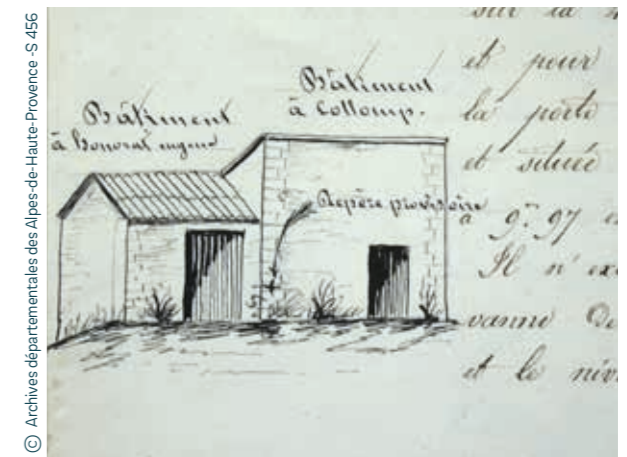 © Archives départementales des Alpes-de-Haute-Provence -S 456
Bâtiment
à Bonorat eugene
Bâtiment
à Collomp.
Repère provisoire
sur la
et pour
la porte
et située
à 9.m 97
Il n'
vanne de
et le niv